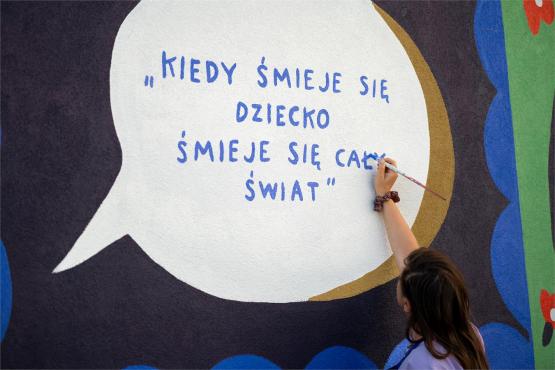 „KIEDY ŚMIEJE SIĘ
DZIECKO
ŚMIEJE SIĘ CAŁY
ŚWIAT”